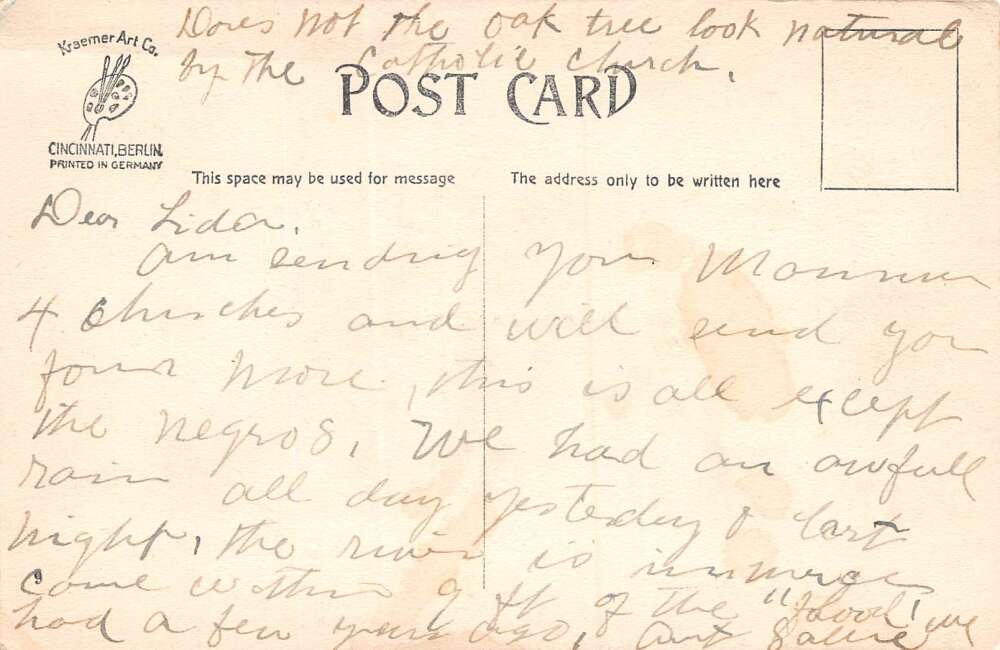 Does not the oak tree look natural
by the Catholic Church.
Kraemer Art Co.
POST CARD
CINCINNATI, BERLIN.
PRINTED IN GERMANY
This space may be used for message
The address only to be written here
Dear Lida.
am sending your Mamma
4 Churches and will send you
four more, this is all except
the negros, We had an awfull
rain all day yesterday & last
night, the river is immense
come within 9 ft of the "flood" we
had a few years ago, Aunt Sallie